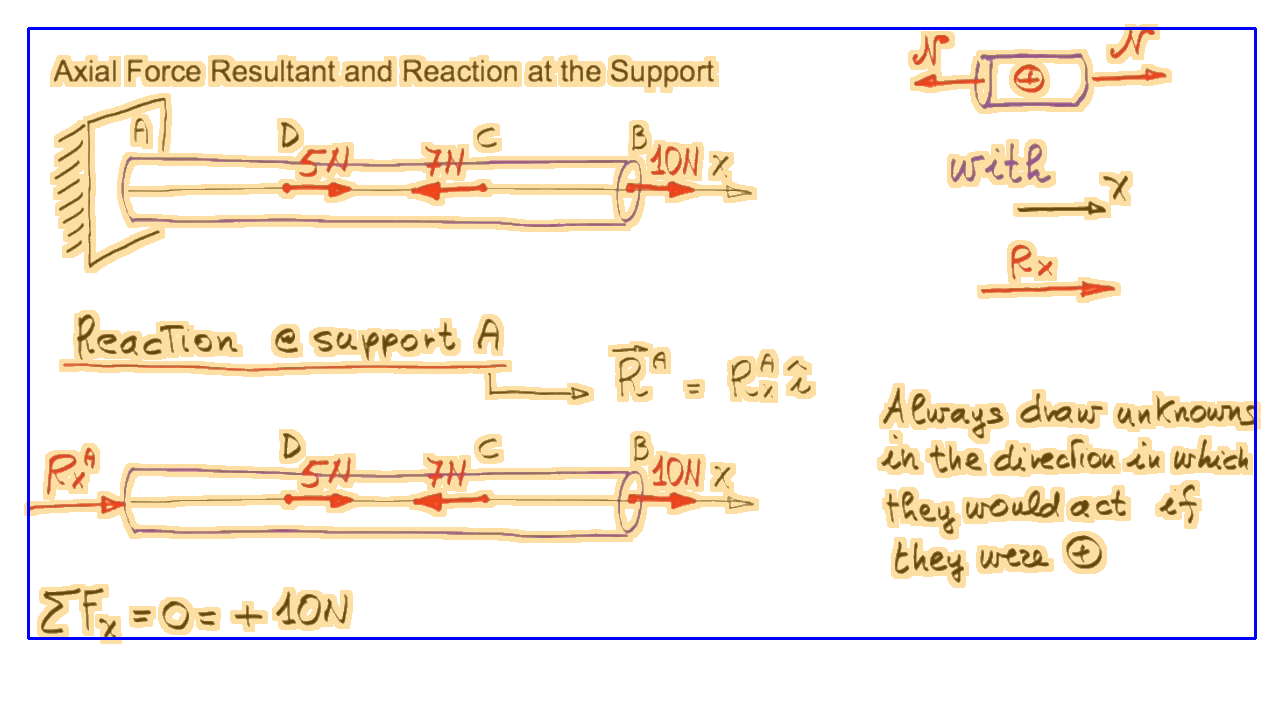 Axial Force Resultant and Reaction at the Support
N N
+
A D 5N 7N C B 10N x
with
x
Rx
Reaction @ support A
R^A = R_x^A î
Always draw unknowns
in the direction in which
they would act if
they were +
R_x^A D 5N 7N C B 10N x
ΣF_x = 0 = + 10N